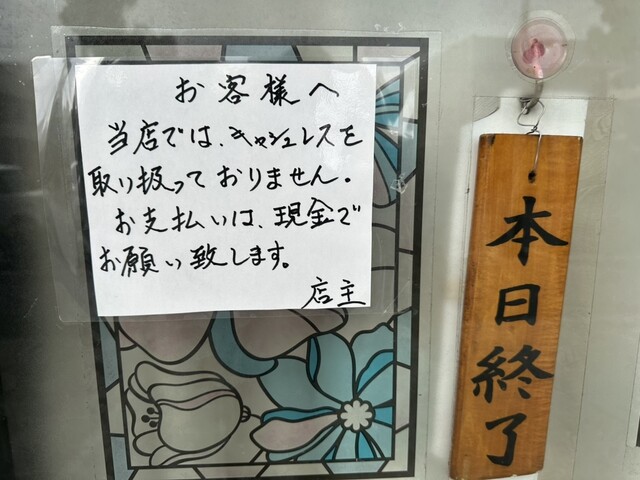 お客様へ
当店では、キャッシュレスを
取り扱っておりません。
お支払いは、現金で
お願い致します。
店主
本日終了